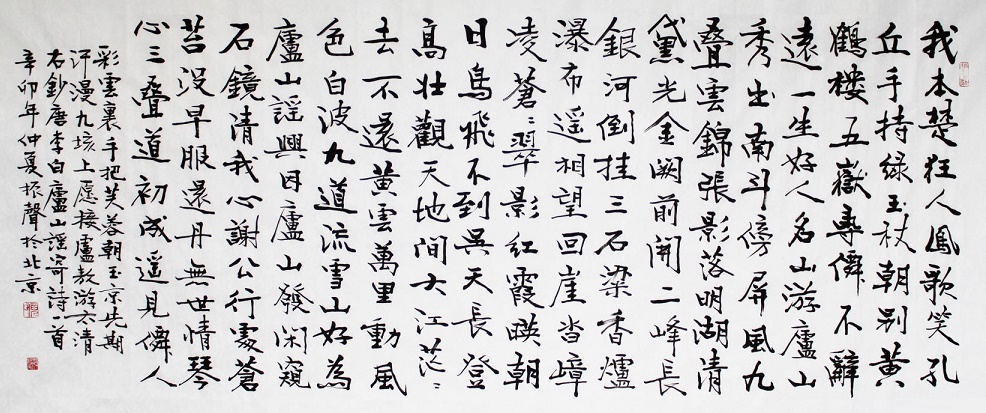 我本楚狂人鳳歌笑孔
丘手持绿玉杖朝别黄
鶴樓五嶽尋僊不辭
遠一生好人名山游廬山
秀出南斗傍屏風九
疊雲錦張影落明湖清
黛光金闕前開二峰長
銀河倒挂三石梁香爐
瀑布遥相望回崖沓嶂
凌蒼〻翠影紅霞暎朝
日鳥飛不到吳天長登
高壯觀天地間大江茫〻
去不還黄雲萬里動風
色白波九道流雪山好為
廬山謡興因廬山發闲窺
石鏡清我心謝公行處蒼
苔没早服還丹無世情琴
心三疊道初成遥見僊人
彩雲裏手把芙蓉朝玉京先期
汗漫九垓上愿接盧敖游太清
右鈔唐李白廬山謡寄詩一首
辛卯年仲夏振聲於北京